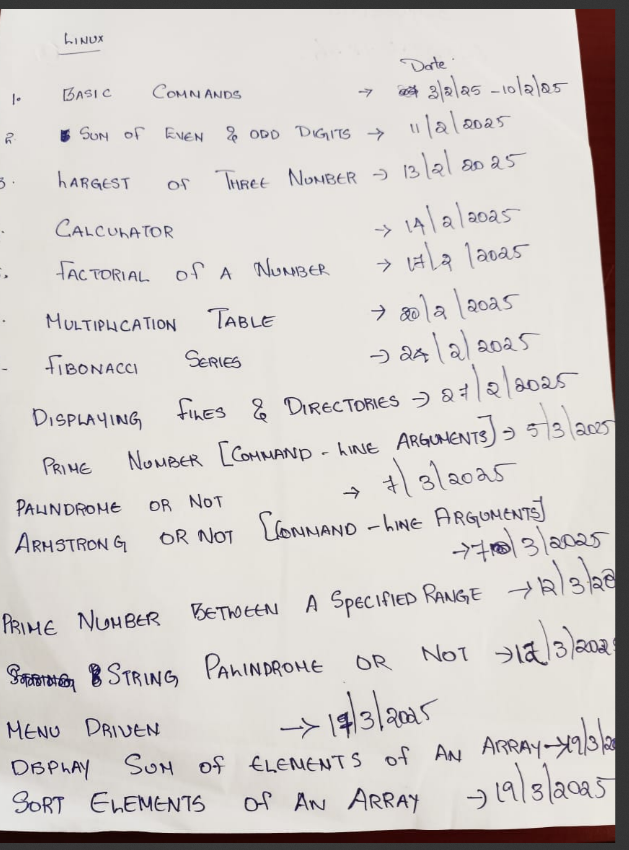 LINUX
Date
1. BASIC COMMANDS → 3/2/25 - 10/2/25
2. SUM OF EVEN & ODD DIGITS → 11/2/2025
3. LARGEST OF THREE NUMBER → 13/2/2025
CALCULATOR → 14/2/2025
FACTORIAL OF A NUMBER → 17/2/2025
MULTIPLICATION TABLE → 20/2/2025
FIBONACCI SERIES → 24/2/2025
DISPLAYING FILES & DIRECTORIES → 27/2/2025
PRIME NUMBER [COMMAND-LINE ARGUMENTS] → 5/3/2025
PALINDROME OR NOT → 7/3/2025
ARMSTRONG OR NOT [COMMAND-LINE ARGUMENTS]
→ 7/3/2025
PRIME NUMBER BETWEEN A SPECIFIED RANGE → 12/3/20
STRING PALINDROME OR NOT → /3/202
MENU DRIVEN → /3/2025
DISPLAY SUM OF ELEMENTS OF AN ARRAY → 19/3/20
SORT ELEMENTS OF AN ARRAY → 19/3/2025